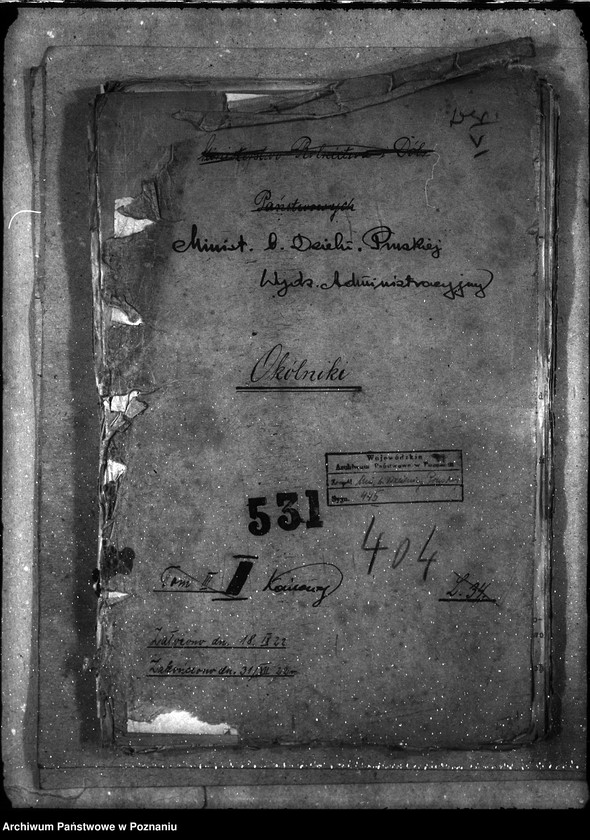 Ministerstwo Rolnictwa i Dób
Państwowych
Minist. b. Dzieln. Pruskiej
Wydz. Administracyjny
Okólniki
Wojewódzkie
Archiwum Państwowe w Poznaniu
Zespół Min. b. Dzielnicy Prusk.
Sygn. 446
531
404
Tom II I Końcowy
L. 94.
Założono dn. 18. IX 22
Zakończono dn. 31/XII 22
Archiwum Państwowe w Poznaniu